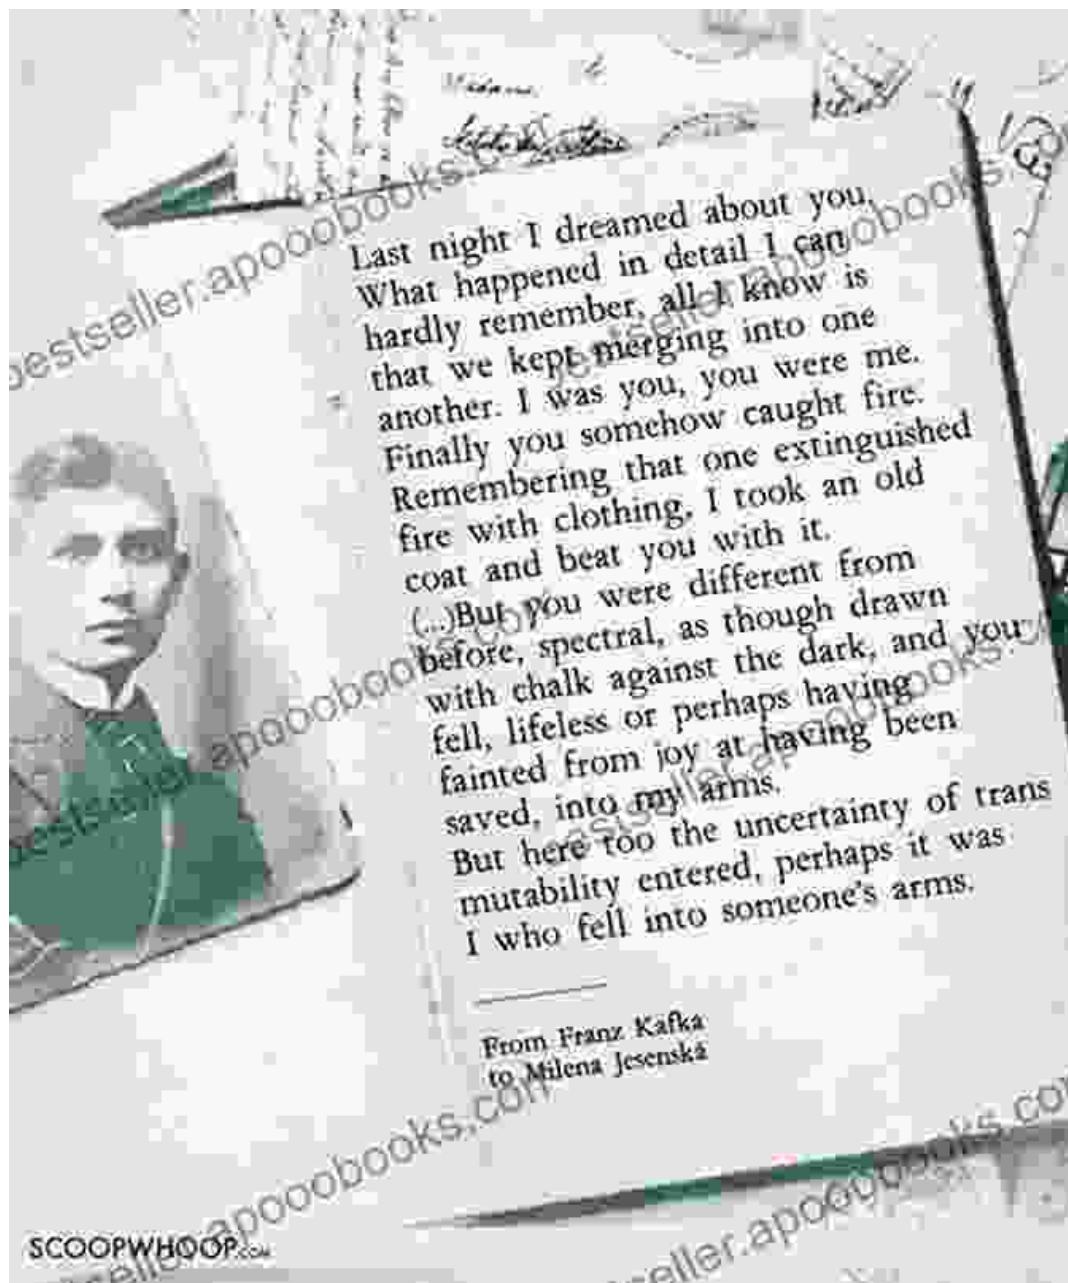 Last night I dreamed about you.
What happened in detail I can
hardly remember, all I know is
that we kept merging into one
another. I was you, you were me.
Finally you somehow caught fire.
Remembering that one extinguished
fire with clothing, I took an old
coat and beat you with it.
(...)But you were different from
before, spectral, as though drawn
with chalk against the dark, and you
fell, lifeless or perhaps having
fainted from joy at having been
saved, into my arms.
But here too the uncertainty of trans
mutability entered, perhaps it was
I who fell into someone's arms.
From Franz Kafka
to Milena Jesenská
SCOOPWHOOP.COM
bestseller.apooobooks.com
bestseller.apooobooks.com
bestseller.apooobooks.com
bestseller.apooobooks.com